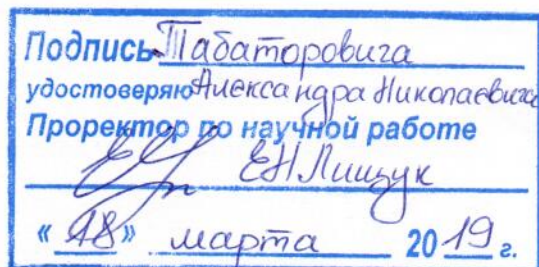 Подпись Табаторовича
удостоверяю Александра Николаевича
Проректор по научной работе
ЕН Лищук
« 18 » марта 2019 г.